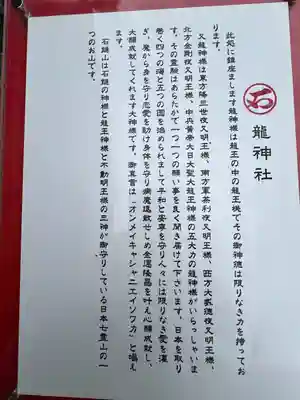 石
龍神社
此処に鎮座まします龍神様は龍王の中の龍王様でその御神徳は限りなき力を持ってお
ります。
又龍神様は東方降三世夜又明王様、南方軍荼利夜又明王様、西方大威徳夜又明王様、
北方金剛夜又明王様、中央黄帝大日大聖大龍王神様の五大力の龍神様がいらっしゃいま
す。その霊験はあらたかで一つ一つの願い事を良く聞き届けて下さいます。日本を取り
巻く四つの海と五つの国を治められまして平和と安寧を守り人々には限りなき愛を漢
ぎ、魔から身を守り恋愛を助け身体を守り病魔退散せしめ金運隆昌を叶え心願成就し、
大願成就してくれます大神様です。御真言は「オンメイキャシャニエイソワカ」と唱え
ます。
石鎚山は石鎚の神様と龍王神様と不動明王様の三神が御守りしている日本七霊山の一
つのお山です。